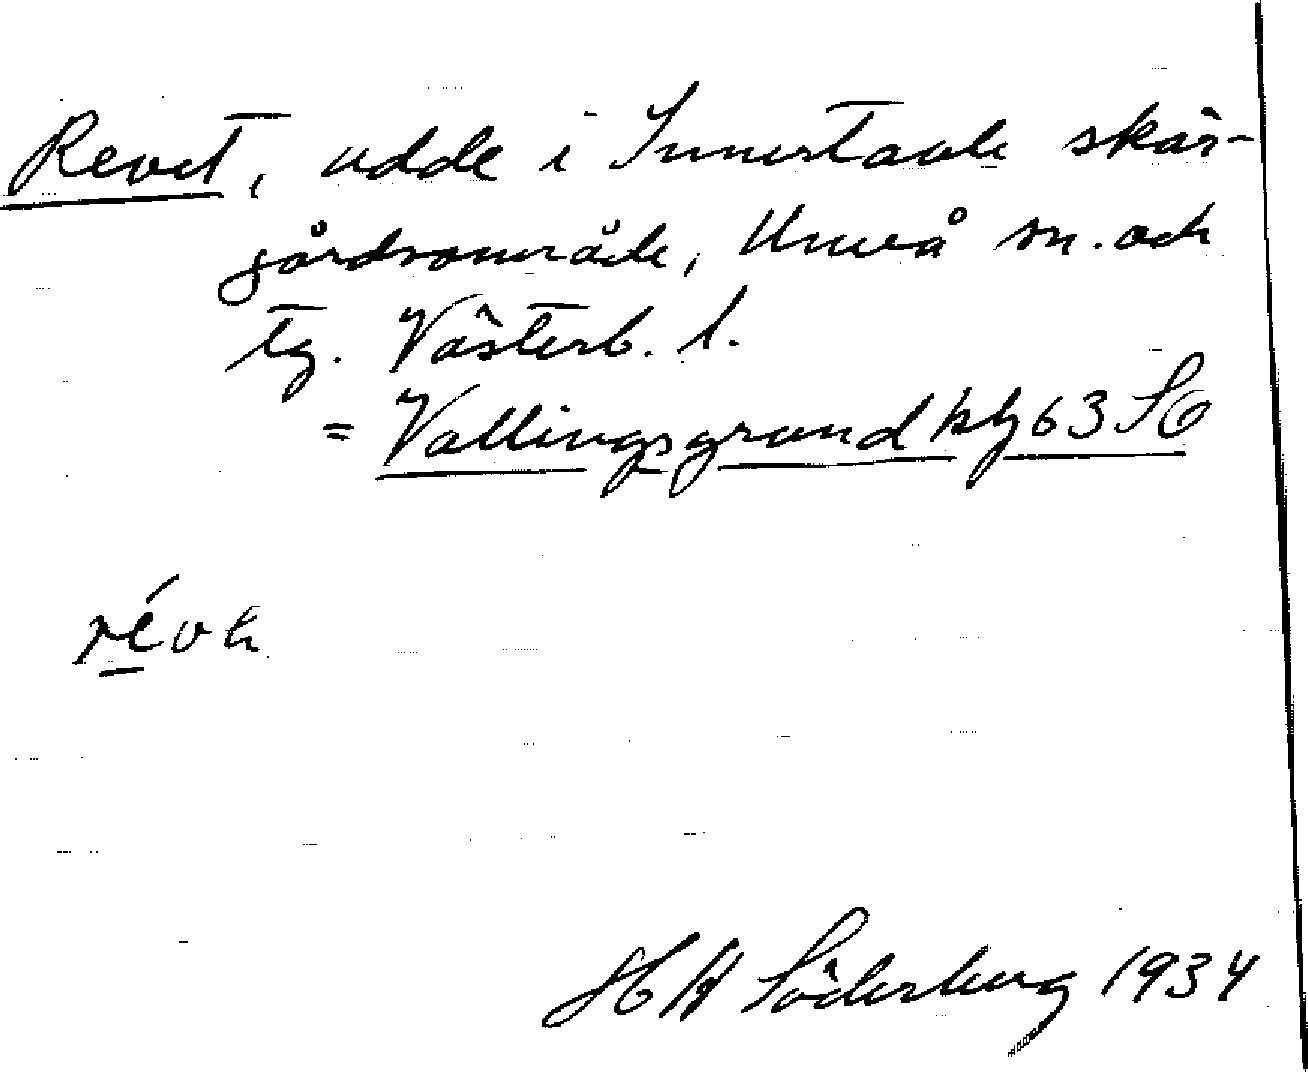 Revet, udde i Innertavle skär-
gårdsområde, Umeå sn. och
tg. Västerb. l.
= Vallingsgrund kbl 63 SO
révə
H Söderberg 1934